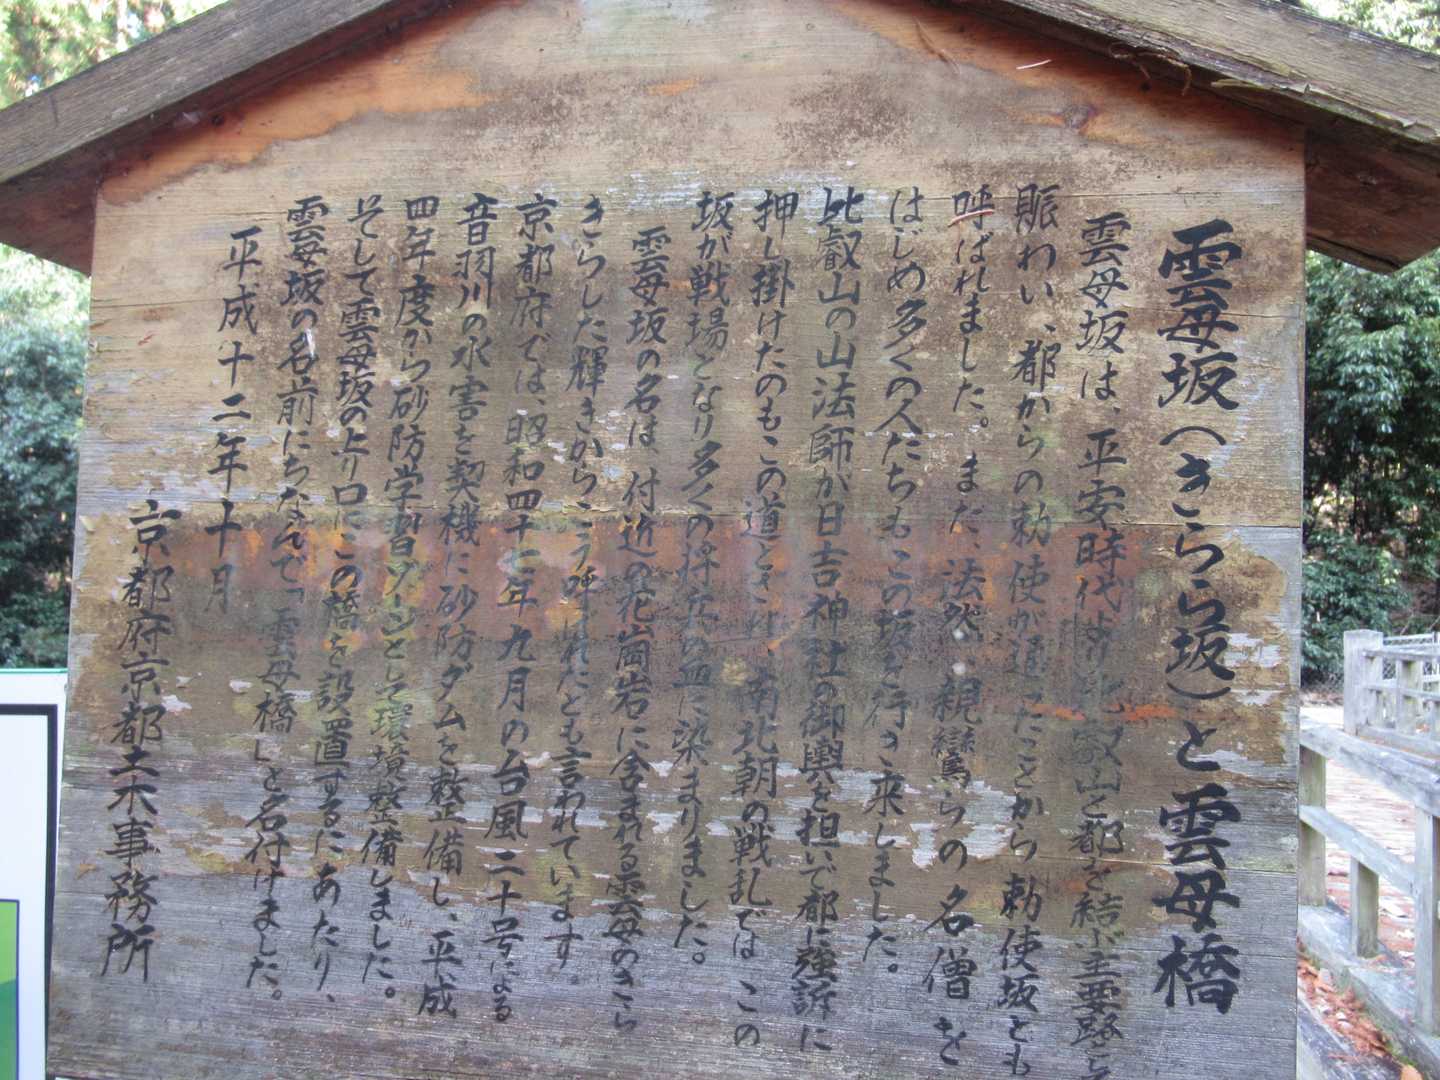 雲母坂(きらら坂)と雲母橋
雲母坂は、平安時代より比叡山と都を結ぶ主要路と
賑わい、都からの勅使が通ったことから勅使坂とも
呼ばれました。また、法然、親鸞らの名僧を
はじめ多くの人たちもこの坂を行き来しました。
比叡山の山法師が日吉神社の御輿を担いで都に強訴に
押し掛けたのもこの道とされ、南北朝の戦乱では この
坂が戦場となり多くの将兵の血に染まりました。
雲母坂の名は、付近の花崗岩に含まれる雲母のきら
きらした輝きからこう呼ばれたとも言われています。
京都府では、昭和四十七年九月の台風二十号による
音羽川の水害を契機に砂防ダムを整備し、平成
四年度から砂防学習ゾーンとして環境整備しました。
そして雲母坂の上り口にこの橋を設置するにあたり、
雲母坂の名前にちなんで「雲母橋」と名付けました。
平成十二年十月
京都府京都土木事務所